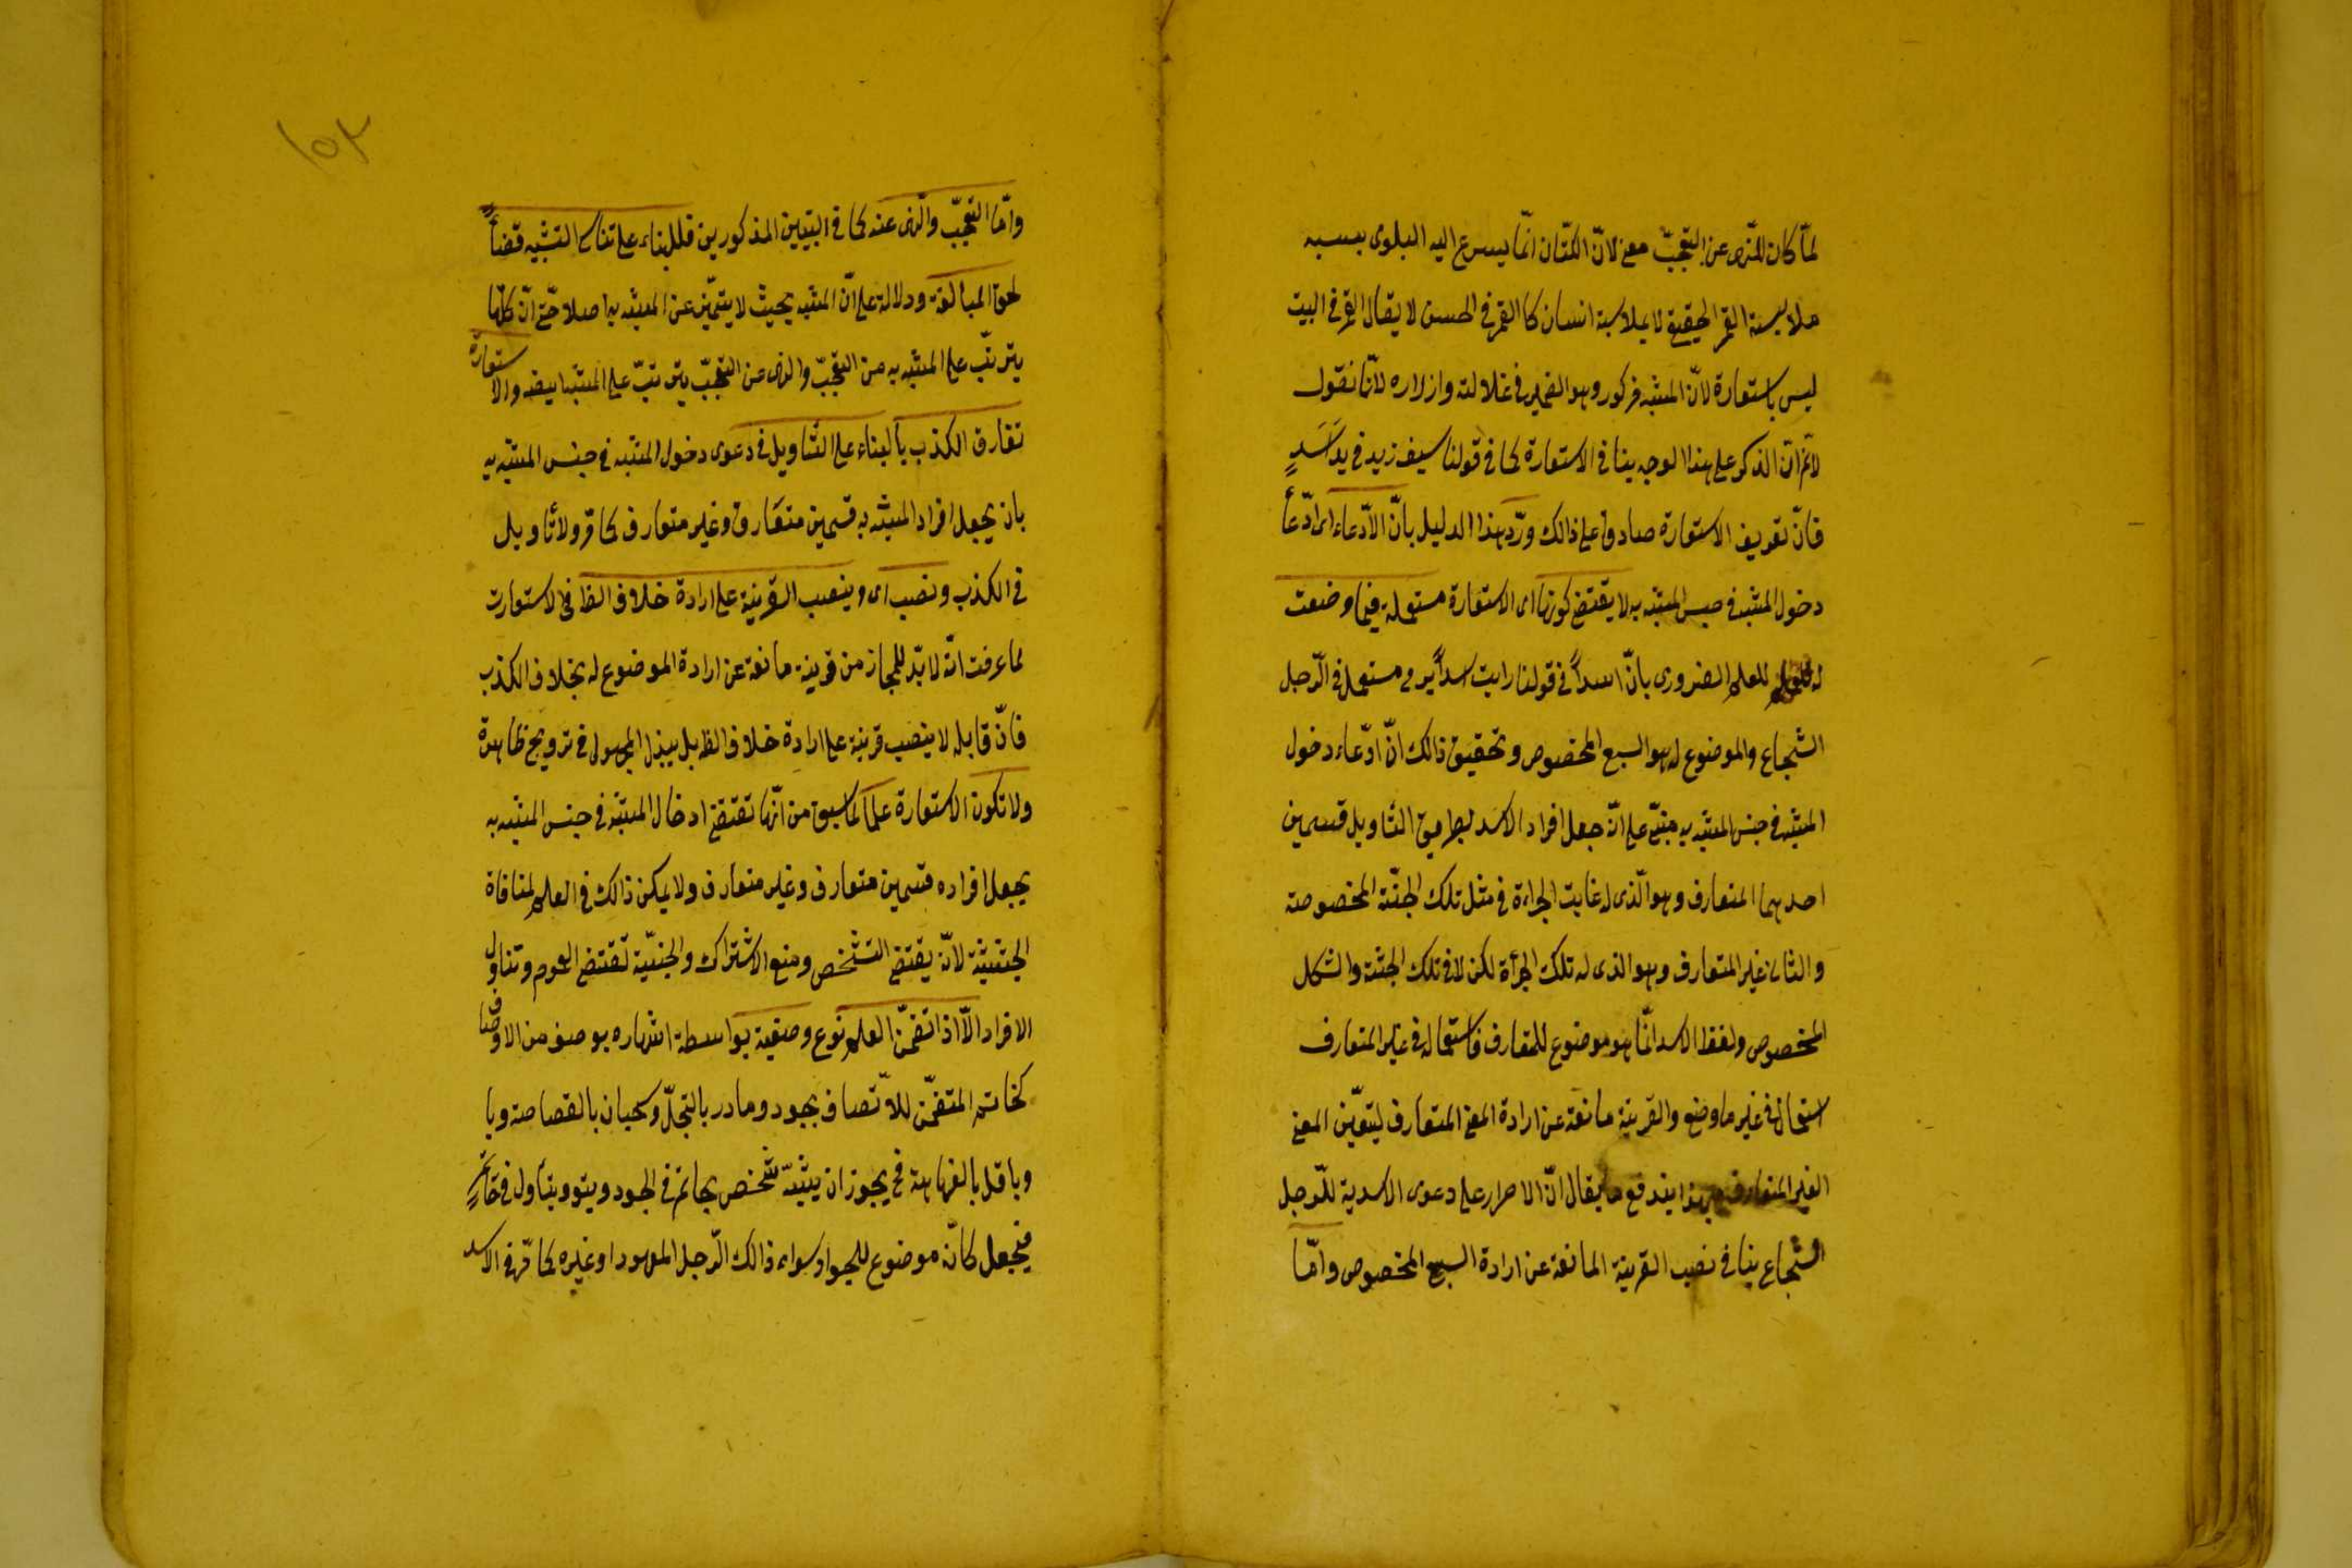 لمّا كان للنّهى عن التعجّب معنى لانّ الكتّان انّما يسرع اليه البلوى بسببه
ملابسة القمر الحقيقى لا بملابسة انسان كا القمر فى الحسن لا يقال القمر فى البيت
ليس باستعارة لانّ المشبّه مذكور وهو الضمير فى غلالته وازراره لانّا نقول
لانم انّ الذكر على هذا الوجه ينافى الاستعارة كما فى قولنا سيف زيد فى يد اسدٍ
فانّ تعريف الاستعارة صادق على ذالك وردّ هذا الدليل بانّ الادّعاء اى ادّعأ
دخول المشبه فى جنس المشبّه به لا يقتضى كونها اى الاستعارة مستعملة فيما وضعت
له للعلم الضرورى بانّ اسداً فى قولنا رايت اسداً يرمى مستعمل فى الرّجل
الشجاع والموضوع له هو السبع المخصوص وتحقيق ذالك انّ ادّعاء دخول
المشبه فى جنس المشبه به مبنىّ على انّ جعل افراد الاسد بطريق التاويل قسمين
احدهما المتعارف وهو الّذى له غايت الجراءة فى مثل تلك الجثّة المخصوصة
والثانى غير المتعارف وهو الذى له تلك الجرأة لكن لا فى تلك الجثة والشكل
المخصوص ولفظ الاسد انّما هو موضوع للمتعارف فاستعماله فى غير المتعارف
استعمال فى غير ما وضع والقرينة مانعة عن ارادة المعنى المتعارف ليتعيّن المعنى
الغير المتعارف وبهذا يندفع ما يقال انّ الاصرار على دعوى الاسدية للرّجل
الشجاع ينافى نصب القرينة المانعة عن ارادة السبع المخصوص وامّا
١٥٢
وامّا التعجّب والنهى عنه كما فى البيتين المذكورين فللبناء على تناسى التشبيه قضأً
لحق المبالغة ودلالة على انّ المشبه بحيث لا يتميّز عن المشبه به اصلا حتّى انّ كلّما
يترتّب على المشبه به من التعجّب والنهى عن التعجّب يترتّب على المشبّه ايضه والاستعارة
تفارق الكذب بالبناء على التأويل فى دعوى دخول المشبه فى جنس المشبّه به
بان يجعل افراد المشبه به قسمين متعارف وغير متعارف كما مرّ ولا تاويل
فى الكذب ونصب اى وينصب القرينة على ارادة خلاف الظ فى الاستعارت
لما عرفت انّه لا بدّ للمجاز من قرينة مانعة عن ارادة الموضوع له بخلاف الكذب
فانّ قايله لا ينصب قرينة على ارادة خلاف الظ بل يبذل المجهول فى ترويج ظاهره
ولا تكون الاستعارة علما لما سبق من انّها تقتضى ادخال المشبّه فى جنس المشبه به
بجعل افراده قسمين متعارف وغير متعارف ولا يمكن ذالك فى العلم لمنافاة
الجنسية لانّه يقتضى التشخص ومنع الاشتراك والجنسيّة تقتضى العموم وتناول
الافراد الّا اذا تضمّن العلم نوع وصفية بواسطة اشهاره بوصف من الاوصاف
كحاتم المتضمّن للاتّصاف بجود ومادر بالبخل وسحبان بالفصاحة وبا
وباقل بالفهاهة فح يجوز ان يشبّه شخص بحاتم فى الجود ويتأول فى حاتمٍ
فيجعل كانّه موضوع للجواد سواء ذالك الرّجل المعهود او غيره كما مرّ فى الاسد